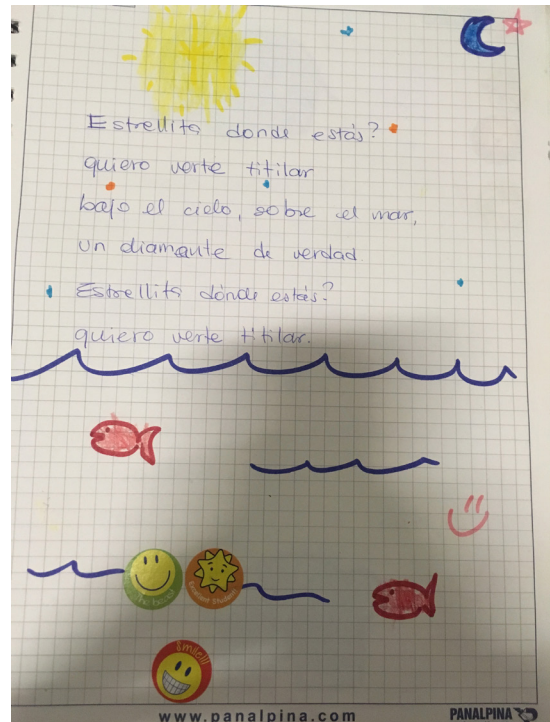 Estrellita donde estás?
quiero verte titilar
bajo el cielo, sobre el mar,
un diamante de verdad
Estrellita dónde estás?
quiero verte titilar.
Smile!!!
www.panalpina.com
PANALPINA